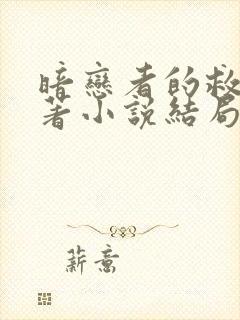 暗戀者的救
著小說結局
薪意